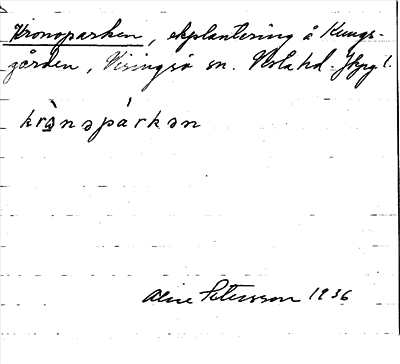 Kronoparken, ekplantering å Kungs-
gården, Visingsö sn. Vista hd. Jkpg l.
krò̱nspárkən
Aline Petersson 1936